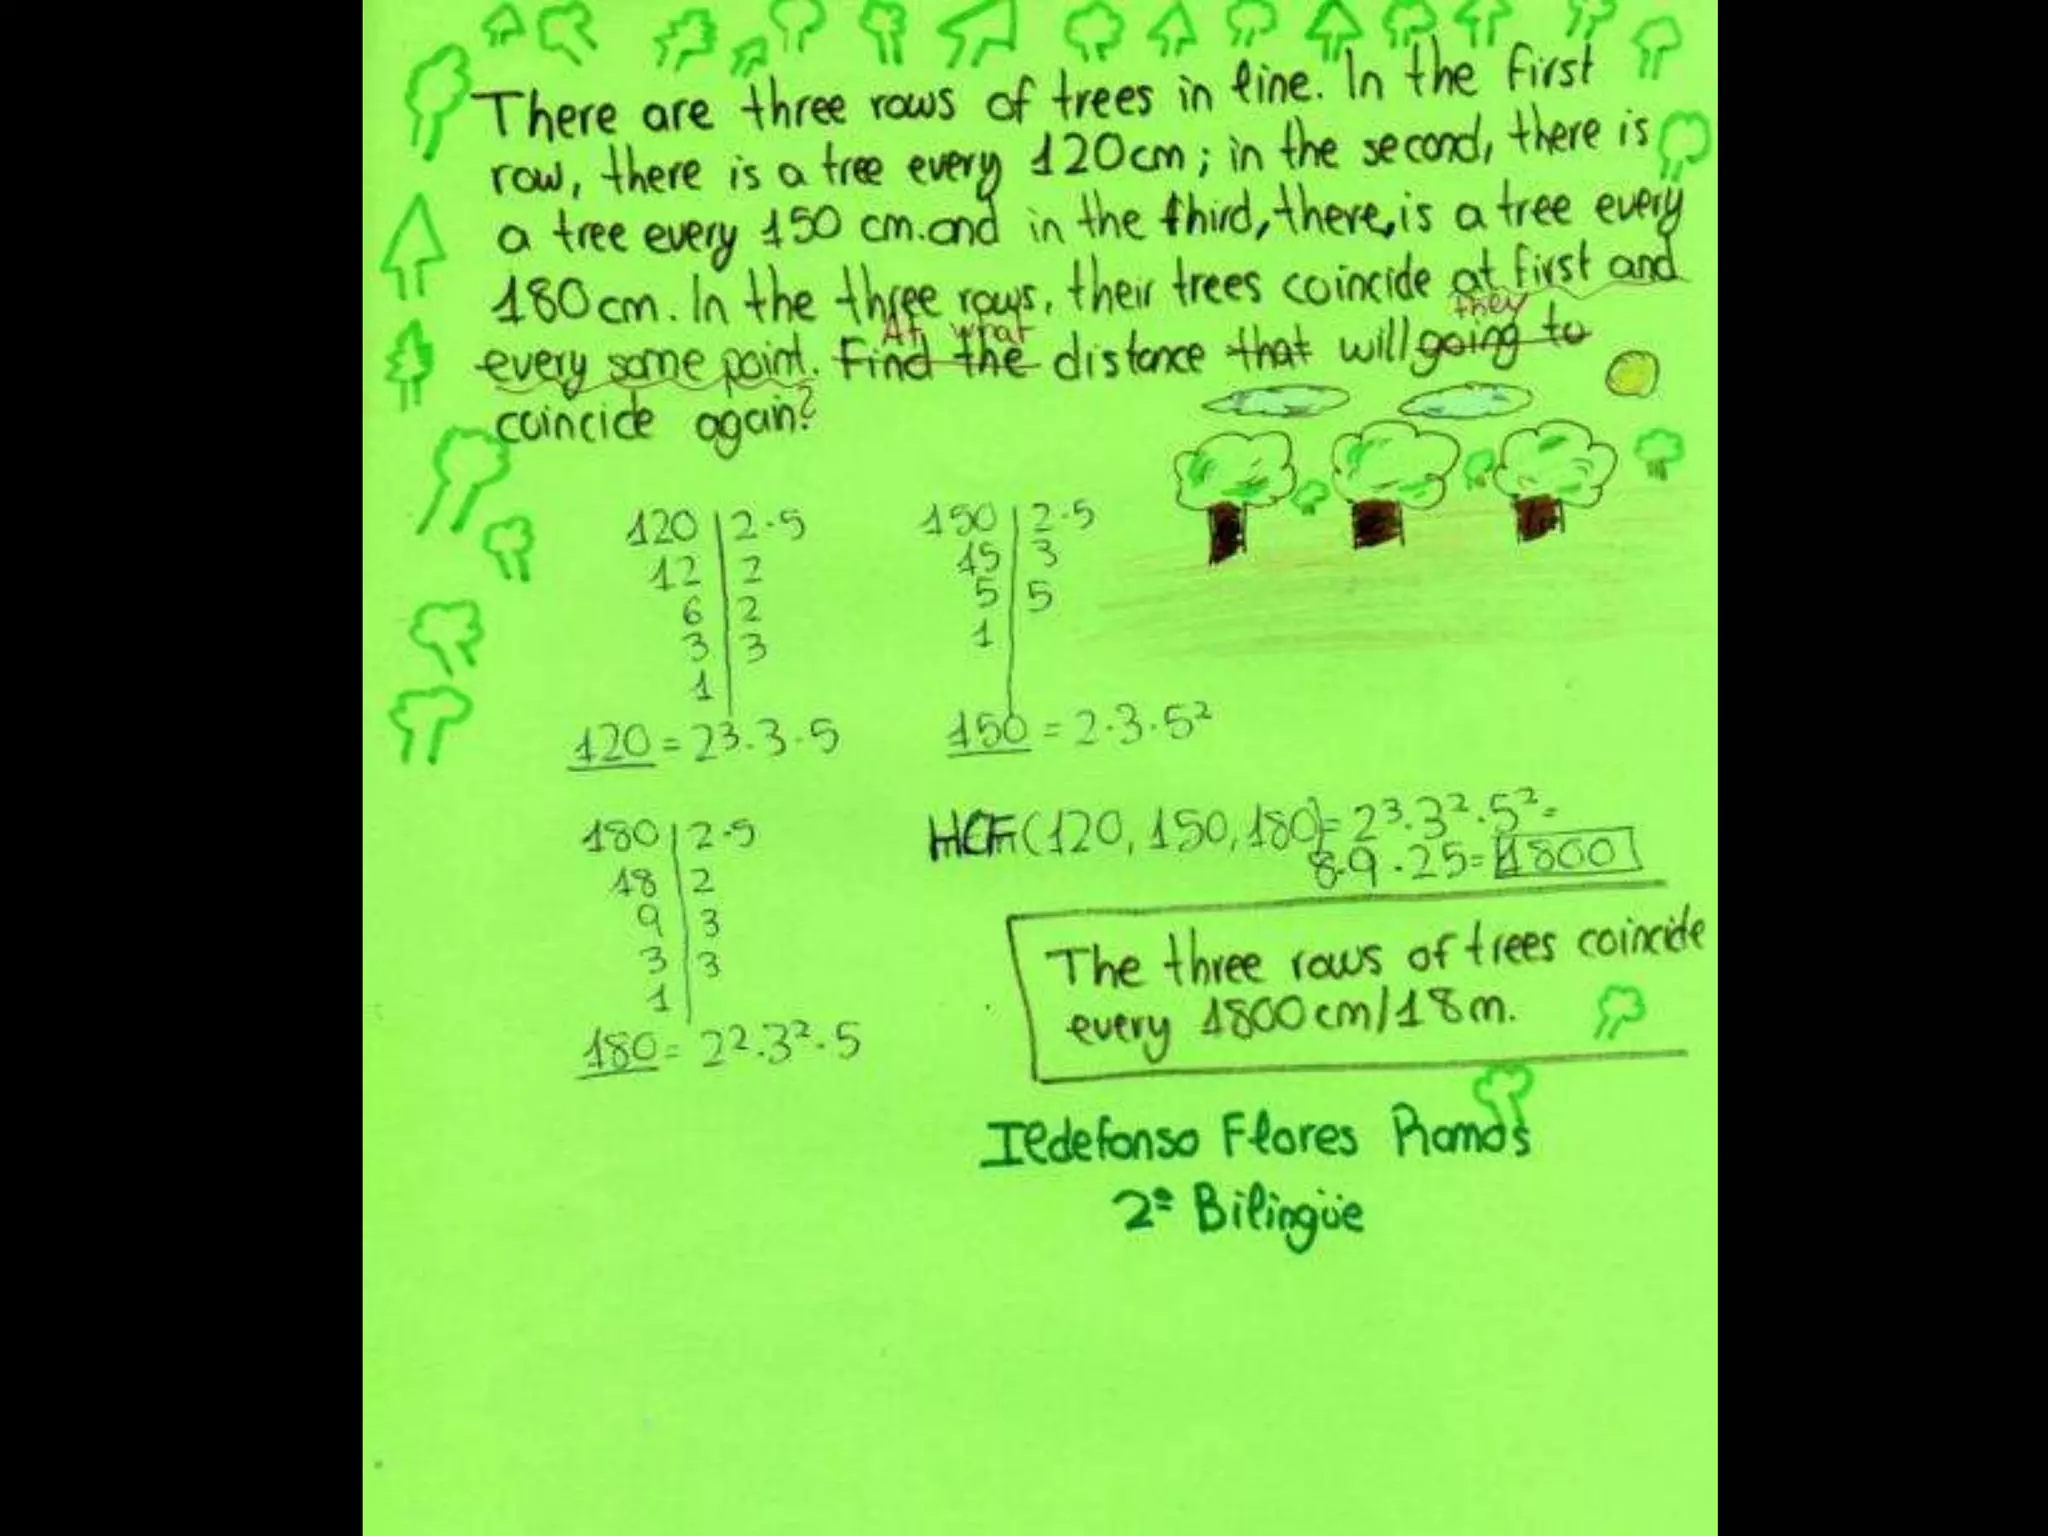 There are three rows of trees in line. In the first
row, there is a tree every 120cm; in the second, there is
a tree every 150 cm. and in the third, there, is a tree every
180cm. In the three rows, their trees coincide at first and
At what they
every same point. Find the distance that will going to
coincide again?
120 2·5 150 2·5
12 2 15 3
6 2 5 5
3 3 1
1
120 = 2³·3·5 150 = 2·3·5²
180 2·5 HCF(120, 150, 180) = 2³·3²·5² =
18 2 8·9·25 = 1800
9 3
3 3
1
180 = 2²·3²·5
The three rows of trees coincide
every 1800cm/18m.
Ildefonso Flores Ramos
2º Bilingüe